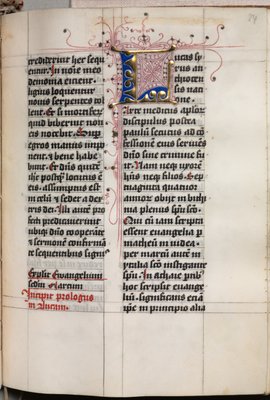 crediderint hec sequ
entur. In noīe meo
demonia eiciēt.
liguis loquentur
nouis serpentes tol
lent. Et si mortiferū
quid biberint non
eis nocebit. Sup
egros manus impo
nent: ⁊ bene habe
bunt. Et dn̄s quidē
ihc postq̄ʒ locutus ē
eis. assumptus est
in celū ⁊ sedet a dex
tris dei. Illi autē pro
fecti predicauerunt
ubiqʒ dn̄o coopārāte
⁊ sermonē confirmā
te sequentibus signis
Explicit Ewangelium
scdm̄ Marcum.
Incipit prologus
in Lucam.
Lucas sy
rus an
thiocen
sis nati
one.
Arte medicus aplor̄
discipulus postea
paulū secutus ad cō
fessionē eius seruiēs
dn̄o sine crimine fu
it. Nam neqʒ uxorē
hn̄s neqʒ filios. Sep
tuaginta quatuor
annor̄ obijt in bithi
nia plenus sp̄u sc̄o.
Qui cū iam scripta
essent euangelia p
matheū in iudea.
per marcū autē in
ytalia sc̄o instigante
sp̄u. In achaie ptibꝫ
hoc scripsit euange
liū. significans etiā
ipse in principio alia